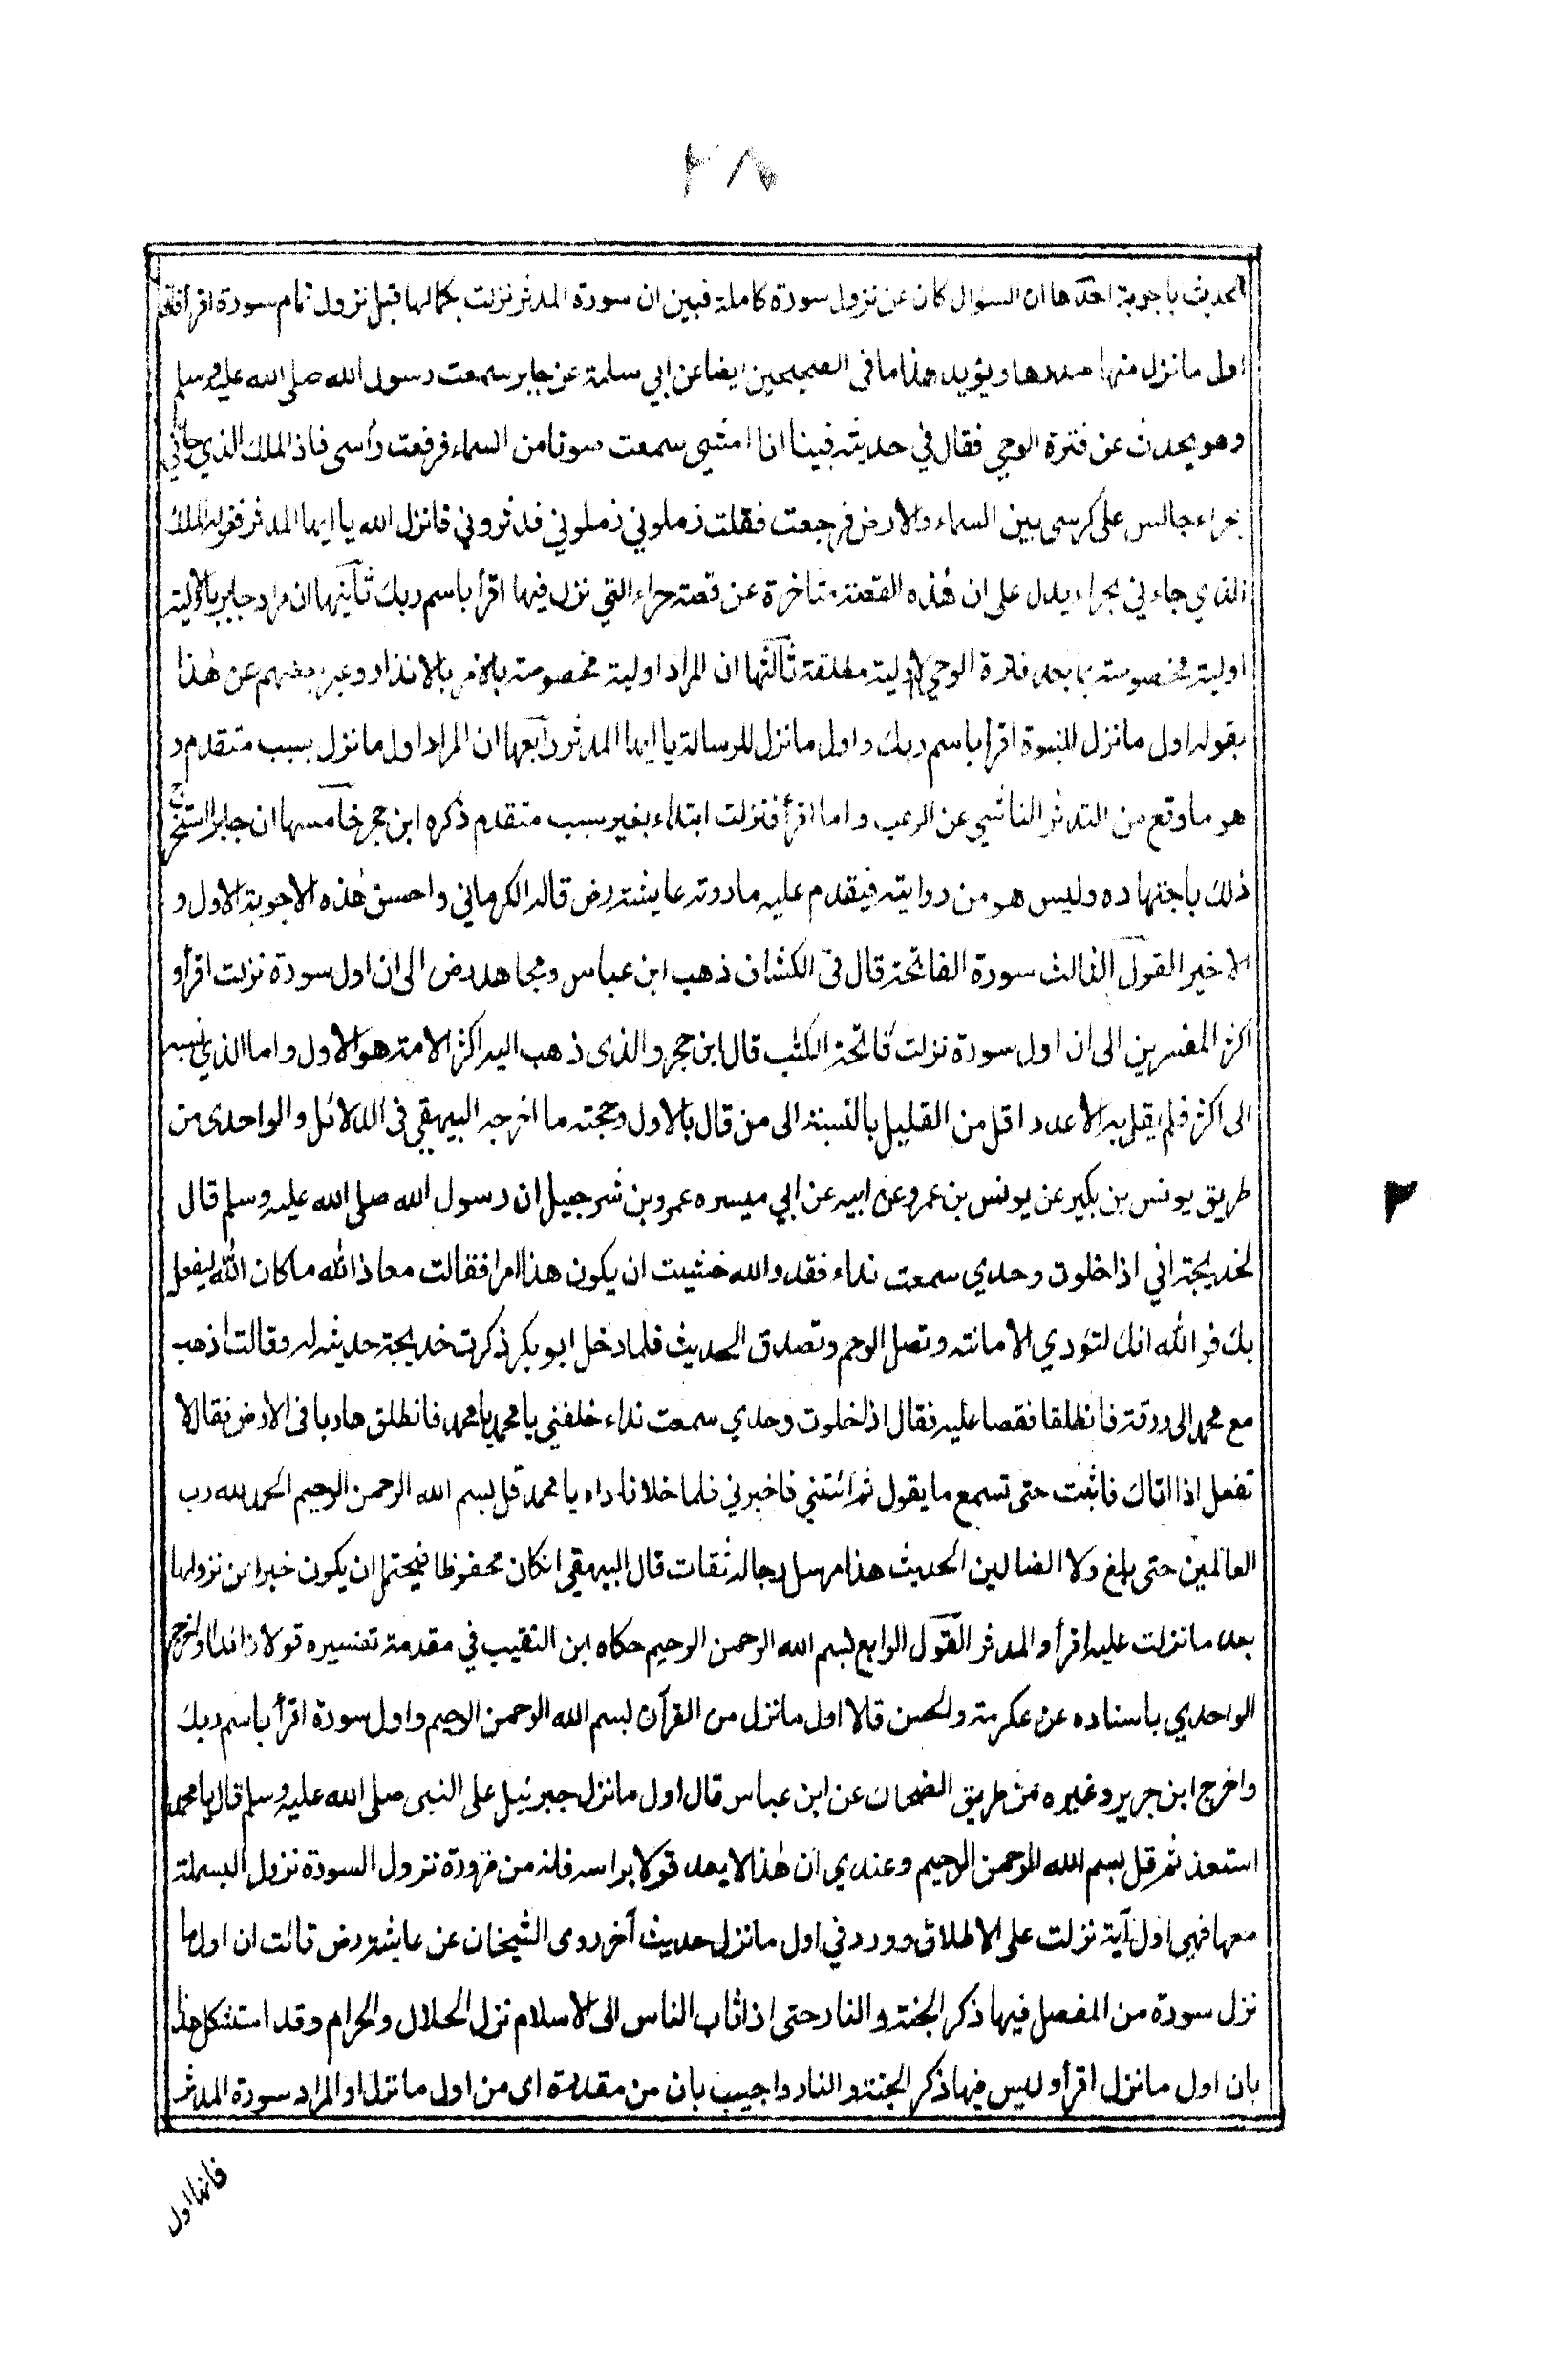 ٢٨
الحديث باجوبة احدها ان السؤال كان عن نزول سورة كاملة فبين ان سورة المدثر نزلت بكمالها قبل نزول تمام سورة اقرأ فانها
اول ما نزل منها صدرها ويؤيد هذا ما فى الصحيحين ايضا عن ابي سلمة عن جابر سمعت رسول الله صلى الله عليه وسلم
وهو يحدث عن فترة الوحي فقال في حديثه فبينا انا امشي سمعت صوتا من السماء فرفعت رأسى فاذا الملك الذي جاني
بحراء جالس على كرسى بين السماء والارض فرجعت فقلت زملوني زملوني فدثروني فانزل الله يا ايها المدثر فقوله الملك
الذي جاءني بحراء يدل على ان هذه القصة متاخرة عن قصة حراء التي نزل فيها اقرأ باسم ربك ثانيها ان مراد جابر بالاولية
اولية مخصوصة بما بعد فترة الوحي لا اولية مطلقة ثالثها ان المراد اولية مخصوصة بالامر بالانذار وعبر بعضهم عن هذا
بقوله اول ما نزل للنبوة اقرأ باسم ربك واول ما نزل للرسالة يا ايها المدثر رابعها ان المراد اول ما نزل بسبب متقدم و
هو ما وقع من التدثر الناشي عن الرعب واما اقرأ فنزلت ابتداء بغير سبب متقدم ذكره ابن حجر خامسها ان جابرا استخرج
ذلك باجتهاده وليس هو من روايته فيقدم عليه ما روته عايشة رض قاله الكرماني واحسن هذه الاجوبة الاول و
الاخير القول الثالث سورة الفاتحة قال فى الكشاف ذهب ابن عباس ومجاهد رض الى ان اول سورة نزلت اقرأ و
اكثر المفسرين الى ان اول سورة نزلت فاتحة الكتب قال ابن حجر والذى ذهب اليه اكثر الامة هو الاول واما الذي نسبه
الى اكثر فلم يقل به الا عدد اقل من القليل بالنسبة الى من قال بالاول وحجته ما اخرجه البيهقي فى الدلائل والواحدى من
طريق يونس بن بكير عن يونس بن عمرو عن ابيه عن ابي ميسره عمرو بن شرحبيل ان رسول الله صلى الله عليه وسلم قال
لخديجة اني اذا خلوت وحدي سمعت نداء فقد والله خشيت ان يكون هذا امرا فقالت معاذ الله ما كان الله ليفعل
بك فوالله انك لتؤدي الامانة وتصل الرحم وتصدق الحديث فلما دخل ابو بكر ذكرت خديجة حديثه له وقالت اذهب
مع محمد الى ورقة فانطلقا فقصا عليه فقال اذا خلوت وحدي سمعت نداء خلفني يا محمد يا محمد فانطلق هاربا فى الارض فقال لا
تفعل اذا اتاك فاثبت حتى تسمع ما يقول ثم ائتني فاخبرني فلما خلا ناداه يا محمد قل بسم الله الرحمن الرحيم الحمد لله رب
العالمين حتى بلغ ولا الضالين الحديث هذا مرسل رجاله ثقات قال البيهقي ان كان محفوظا فيحتمل ان يكون خبرا عن نزولها
بعد ما نزلت عليه اقرأ والمدثر القول الرابع بسم الله الرحمن الرحيم حكاه ابن النقيب في مقدمة تفسيره قولا زائدا واخرج
الواحدي باسناده عن عكرمة والحسن قالا اول ما نزل من القرآن بسم الله الرحمن الرحيم واول سورة اقرأ باسم ربك
واخرج ابن جرير وغيره من طريق الضحاك عن ابن عباس قال اول ما نزل جبرئيل على النبى صلى الله عليه وسلم قال يا محمد
استعذ ثم قل بسم الله الرحمن الرحيم وعندي ان هذا لا يعد قولا براسه فانه من ضرورة نزول السورة نزول البسملة
معها فهى اول آية نزلت على الاطلاق وورد في اول ما نزل حديث آخر روى الشيخان عن عايشة رض قالت ان اول ما
نزل سورة من المفصل فيها ذكر الجنة والنار حتى اذا ثاب الناس الى الاسلام نزل الحلال والحرام وقد استشكل هذا
بان اول ما نزل اقرأ وليس فيها ذكر الجنة والنار واجيب بان من مقدرة اى من اول ما نزل او المراد سورة المدثر
فانها اول
٣